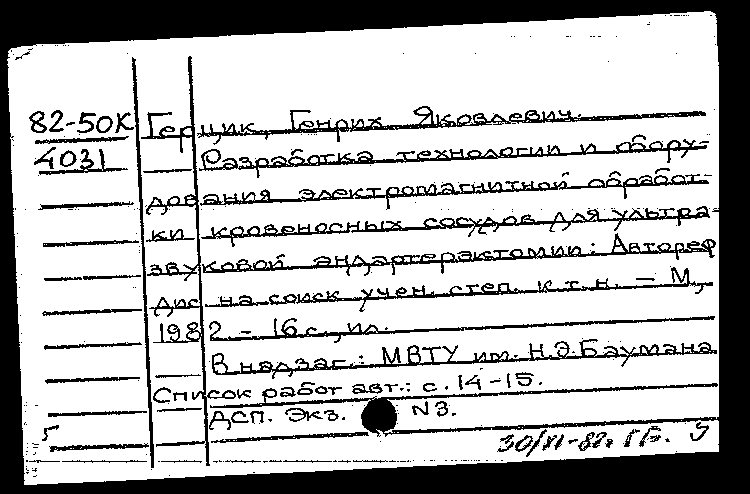 82-50К Герцик, Генрих Яковлевич.
4031 Разработка технологии и обору-
дования электромагнитной обработ-
ки кровеносных сосудов для ультра-
звуковой эндартерэктомии: Автореф
дис. на соиск учен. степ. к.т.н. – М.,
1982 – 16 с., ил.
В надзаг.: МВТУ им. Н.Э.Баумана
Список работ авт.: с. 14-15.
ДСП. Экз. N3.
5 30/XI-82г.